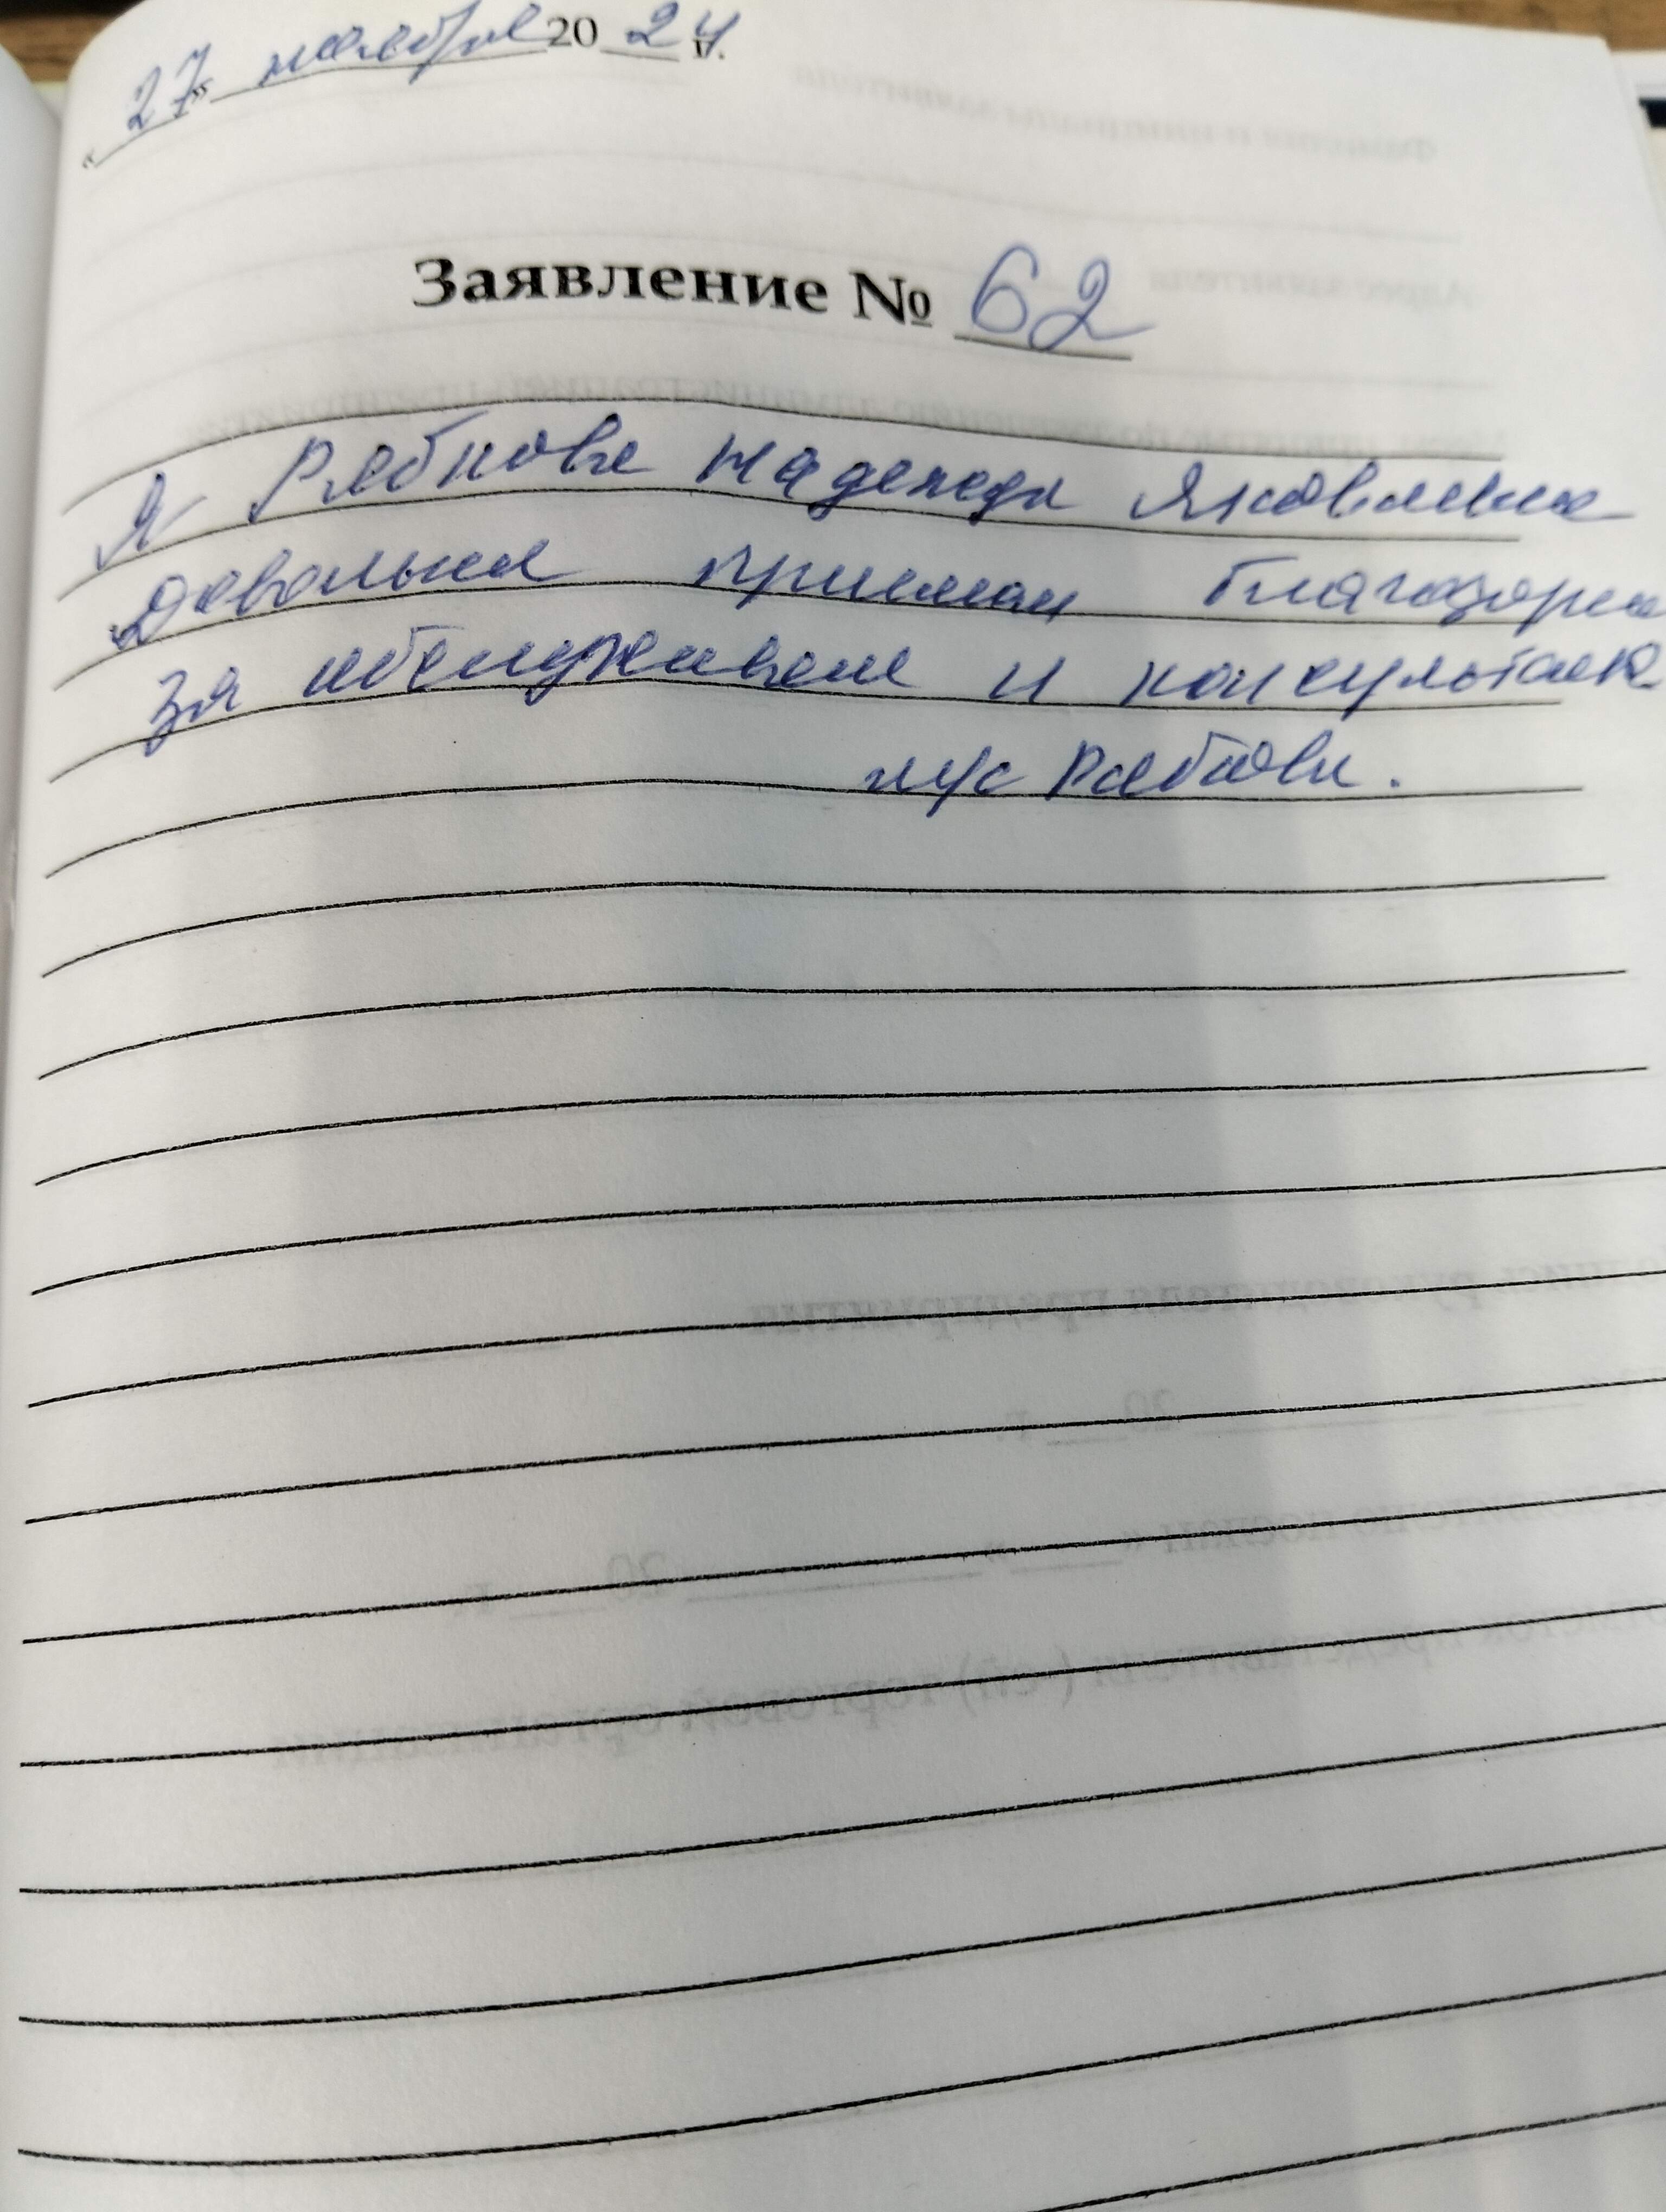 «27» ноября 2024 г.
Заявление № 62
Я Рябкова Надежда Яковлевна
довольна приемом благодарна
за обслуживание и консультац